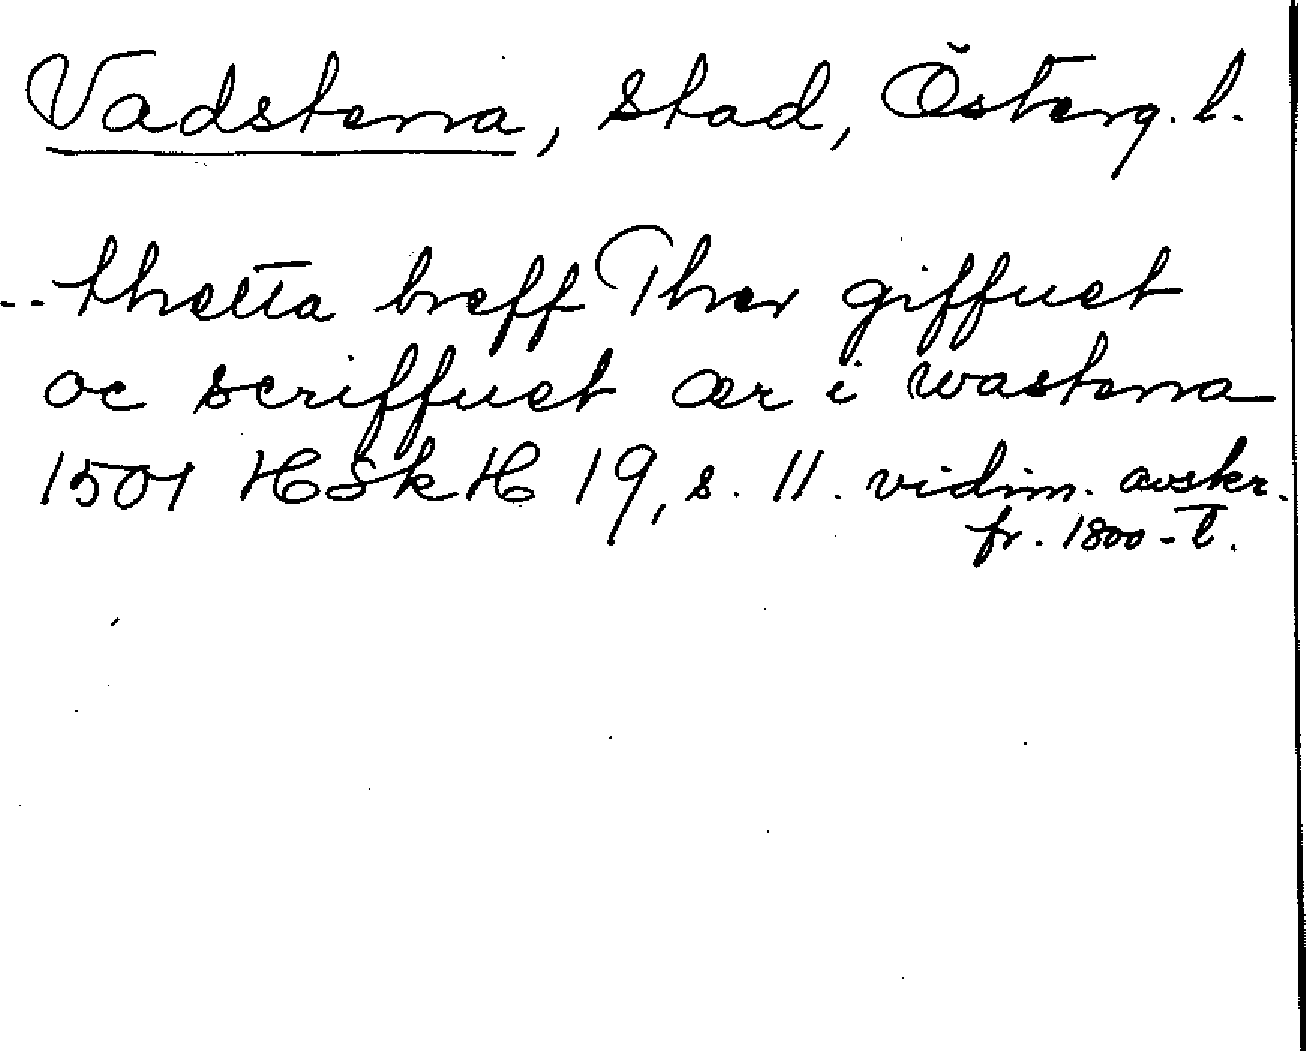 Vadstena, stad, Österg. l.
-- thetta breff Ther giffuet
oc scriffuet ær i wastena
1501 HSkH 19, s. 11. vidim. avskr.
fr. 1800-t.